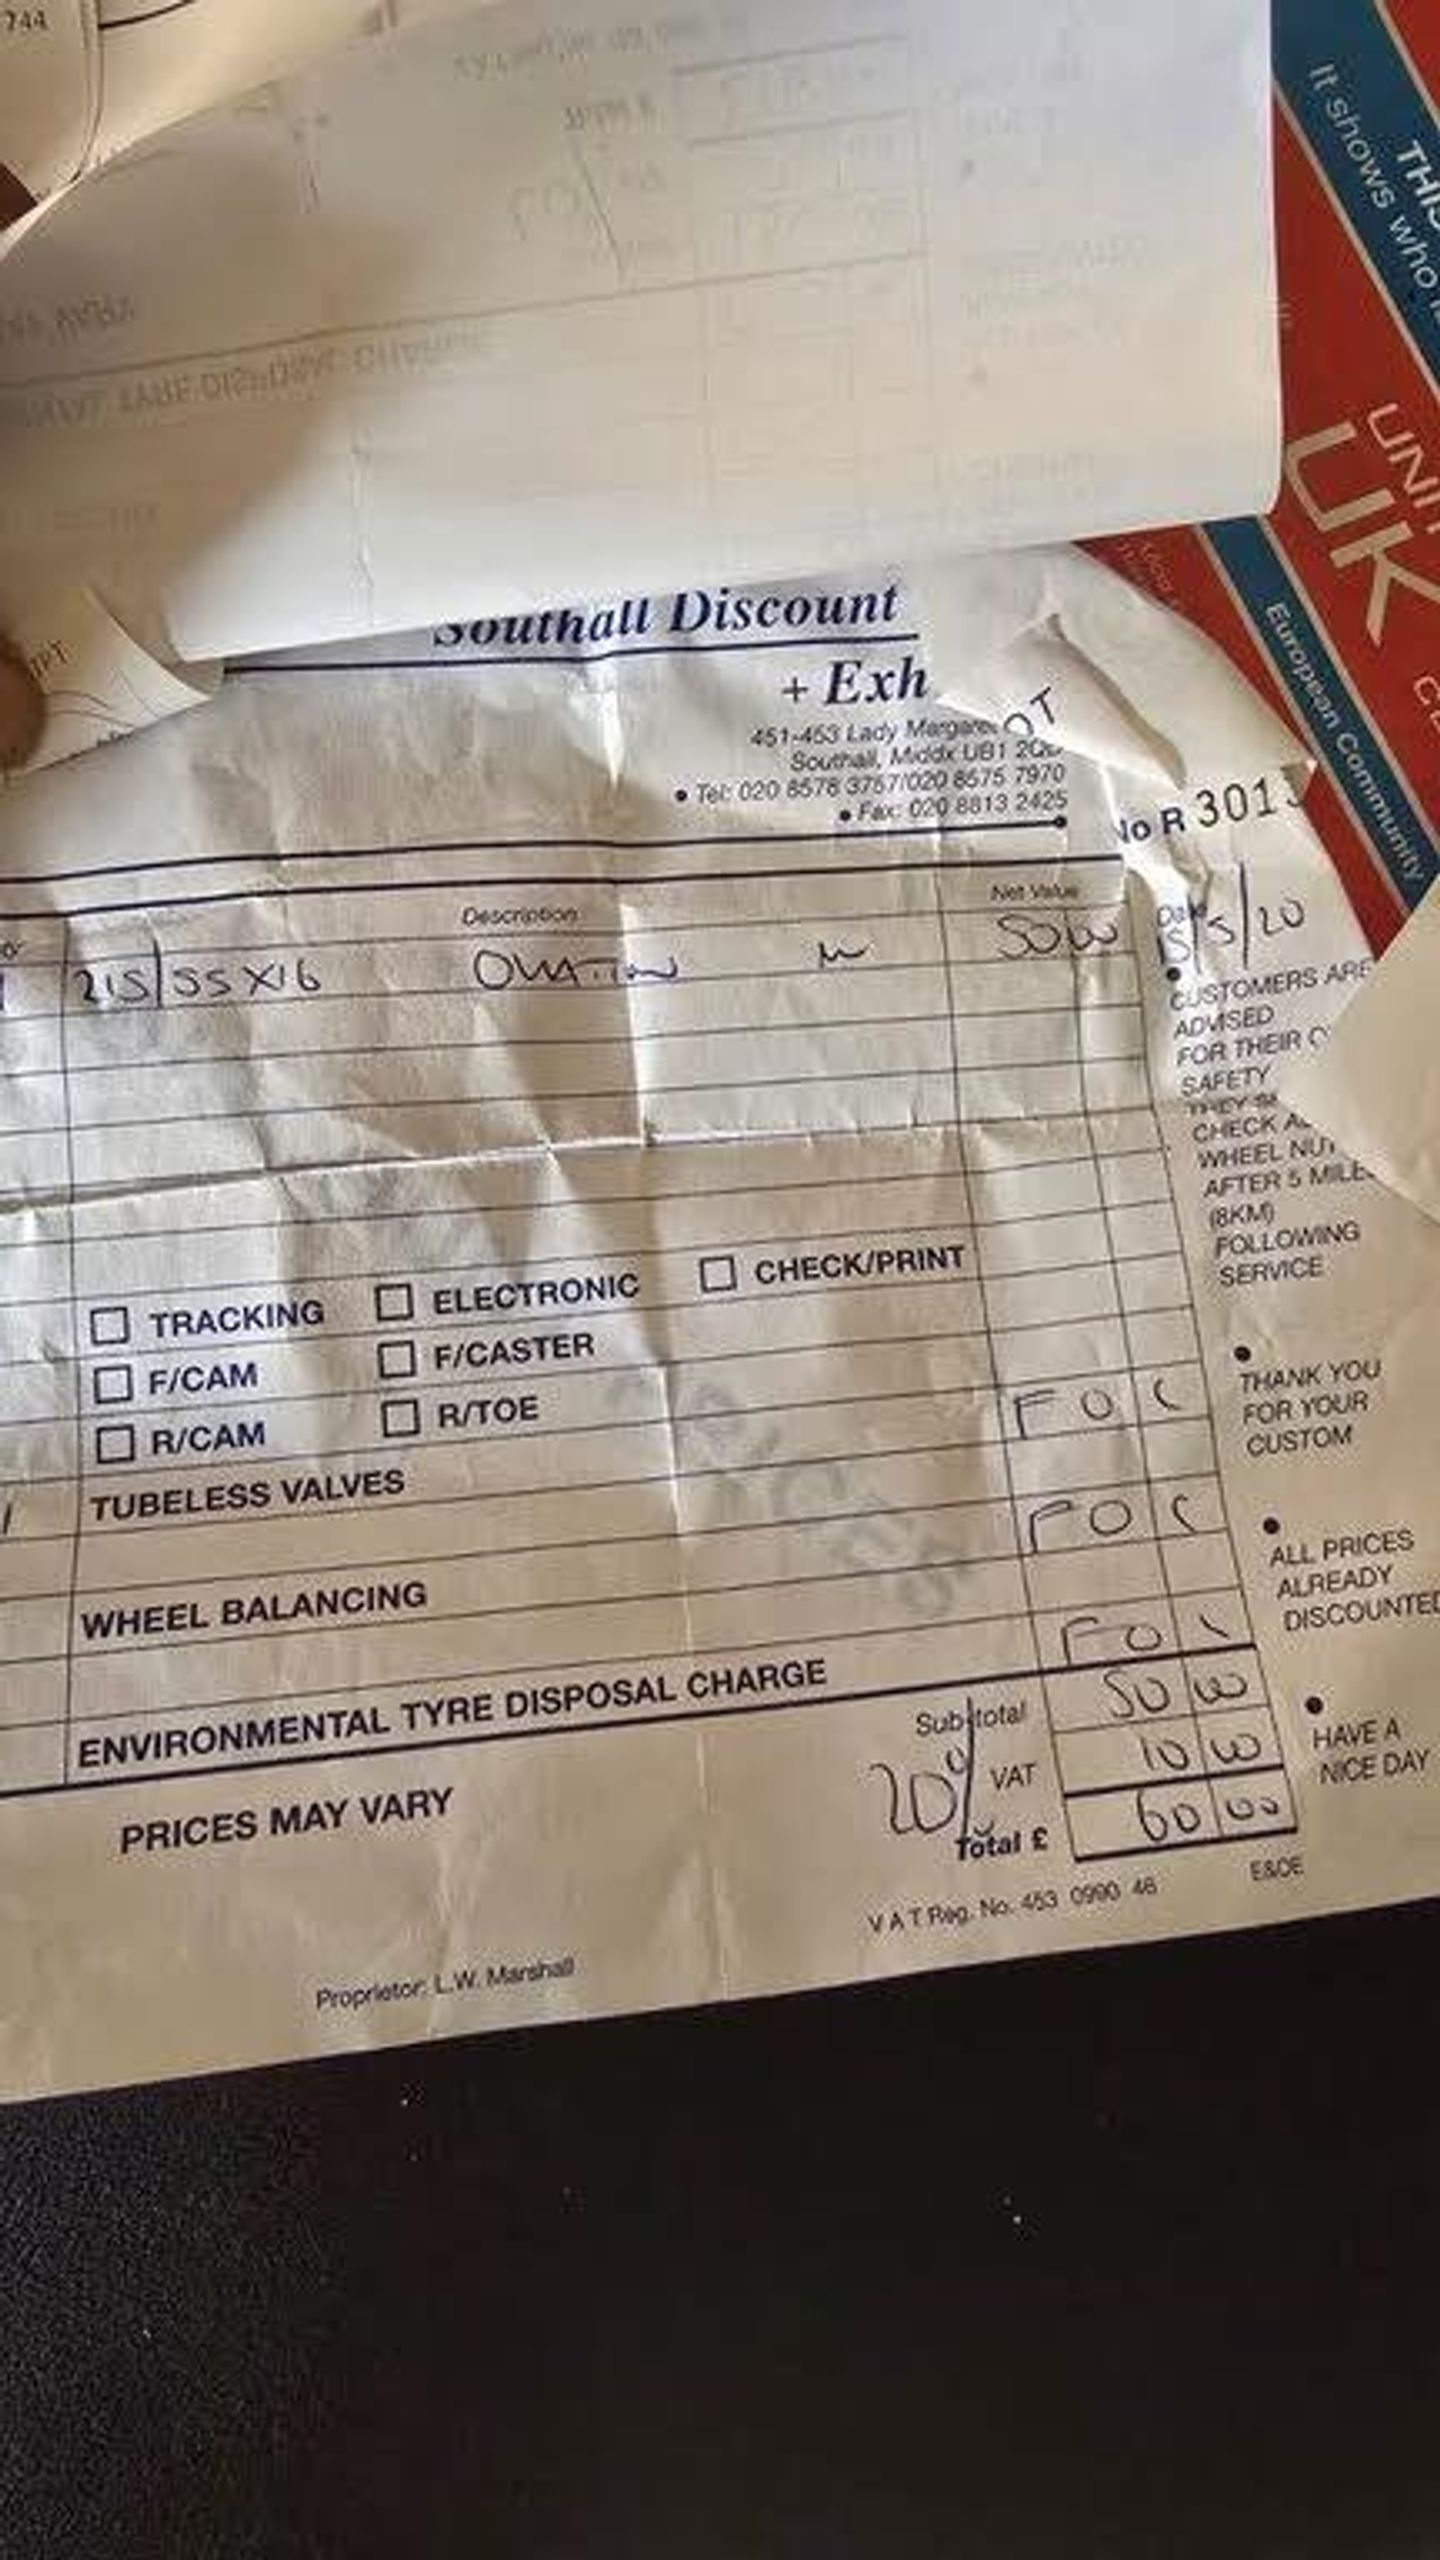 744
THIS
It shows who is
UNIT
UK
European Community
Southall Discount
+ Exh
OT
451-453 Lady Margaret
Southall, Middx UB1
• Tel: 020 8578 3757/020 8575 7970
• Fax: 020 8813 2425
No R 301
Description
Net Value
Date
5/5/20
215/55X16 OVATION 50 00
• CUSTOMERS ARE
ADVISED
FOR THEIR
SAFETY
THEY
CHECK
WHEEL NUT
AFTER 5 MILES
(8KM)
FOLLOWING
SERVICE
☐ TRACKING ☐ ELECTRONIC ☐ CHECK/PRINT
☐ F/CAM ☐ F/CASTER
☐ R/CAM ☐ R/TOE
• THANK YOU
FOR YOUR
CUSTOM
TUBELESS VALVES F O C
WHEEL BALANCING F O C
ENVIRONMENTAL TYRE DISPOSAL CHARGE F O C
• ALL PRICES
ALREADY
DISCOUNTED
Sub total 50 00
20% VAT 10 00
Total £ 60 00
• HAVE A
NICE DAY
PRICES MAY VARY
E&OE
V A T Reg. No. 453 0990 46
Proprietor: L.W. Marshall